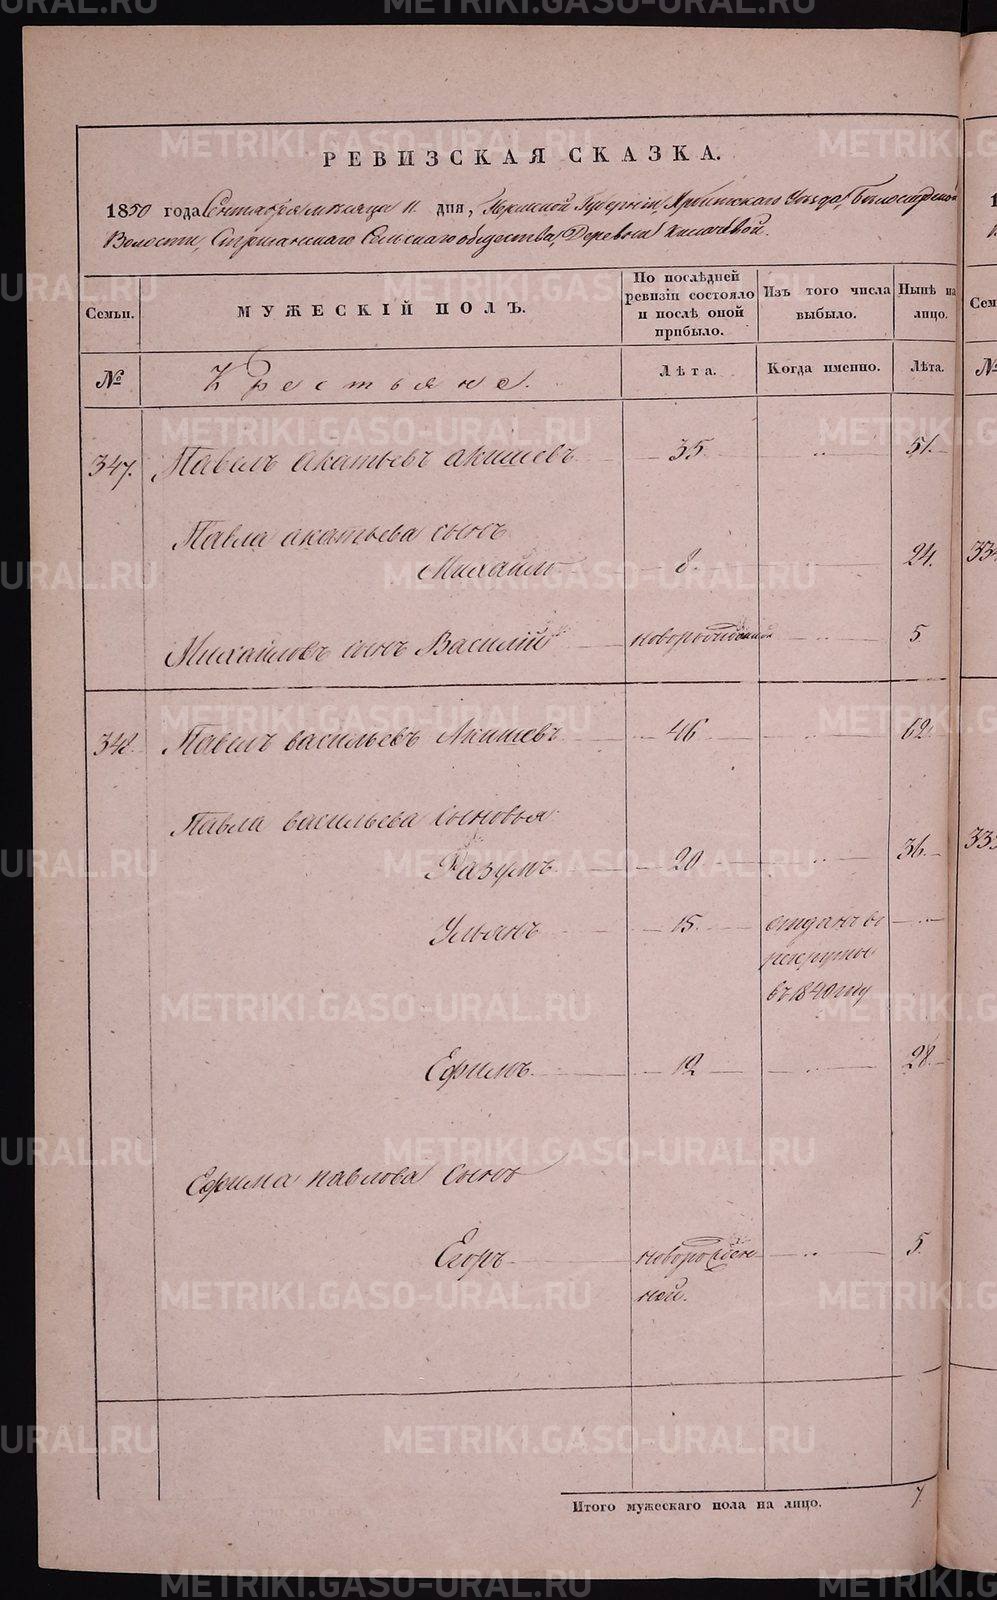 РЕВИЗСКАЯ СКАЗКА.
1850 года Сентября месяца 11 дня, Пермской Губерніи, Ирбитскаго Уѣзда,
Волости, Стриганскаго Сельскаго общества, Деревни
Семьи.
МУЖЕСКІЙ ПОЛЪ.
По послѣдней ревизіи состояло и послѣ оной прибыло.
Изъ того числа выбыло.
Нынѣ на лицо.
№
Крестьяне.
Лѣта.
Когда именно.
Лѣта.
347. Павелъ Акатьевъ Акишевъ 35. 51.
Павла Акатьева сынъ
Михайло 8. 24.
Михайловъ сынъ Василій новорожденной 5.
348. Павелъ Васильевъ Акишевъ 46 62.
Павла Васильева сыновья
Разумъ 20. 36.
Ульянъ 15. отданъ въ
рекруты
въ 1840 году
Ефимъ 12 28.
Ефима Павлова сынъ
Егоръ новорожден- 5.
ной.
Итого мужескаго пола на лицо. 7.
METRIKI.GASO-URAL.RU